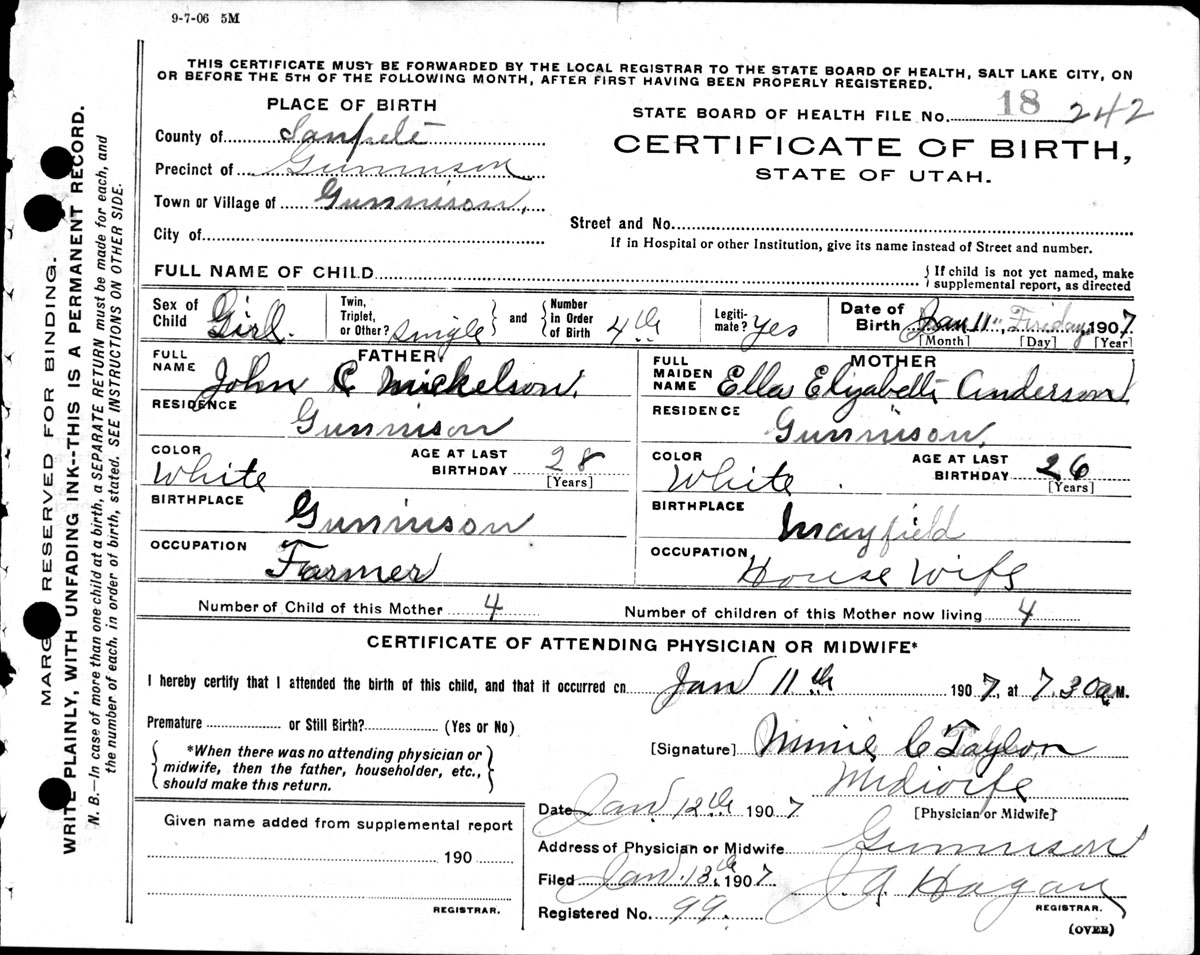 9-7-06 5M
THIS CERTIFICATE MUST BE FORWARDED BY THE LOCAL REGISTRAR TO THE STATE BOARD OF HEALTH, SALT LAKE CITY, ON
OR BEFORE THE 5TH OF THE FOLLOWING MONTH, AFTER FIRST HAVING BEEN PROPERLY REGISTERED.
PLACE OF BIRTH
STATE BOARD OF HEALTH FILE No. 18 242
County of Sanpete
CERTIFICATE OF BIRTH,
Precinct of Gunnison
STATE OF UTAH.
Town or Village of Gunnison,
Street and No.
City of
If in Hospital or other Institution, give its name instead of Street and number.
FULL NAME OF CHILD { If child is not yet named, make supplemental report, as directed
Sex of Child Girl. Twin, Triplet, or Other? Single } and { Number in Order of Birth 4th Legitimate? Yes Date of Birth Jan 11, Friday 1907
[Month] [Day] [Year]
FATHER
MOTHER
FULL NAME John C Mickelson.
FULL MAIDEN NAME Ella Elizabeth Anderson
RESIDENCE Gunnison
RESIDENCE Gunnison.
COLOR White AGE AT LAST BIRTHDAY 28 [Years]
COLOR White. AGE AT LAST BIRTHDAY 26 [Years]
BIRTHPLACE Gunnison
BIRTHPLACE Mayfield
OCCUPATION Farmer
OCCUPATION House Wife
Number of Child of this Mother 4 Number of children of this Mother now living 4
CERTIFICATE OF ATTENDING PHYSICIAN OR MIDWIFE*
I hereby certify that I attended the birth of this child, and that it occurred on Jan 11th 1907, at 7.30 a M.
Premature or Still Birth? (Yes or No)
{ *When there was no attending physician or midwife, then the father, householder, etc., should make this return. }
[Signature] C Taylor
Midwife
[Physician or Midwife]
Date Jan. 12th 1907
Given name added from supplemental report
190
REGISTRAR.
Address of Physician or Midwife Gunnison
Filed Jan. 13th 1907 J. A. Hagan
REGISTRAR.
Registered No. 99.
(OVER)
MARGIN RESERVED FOR BINDING.
WRITE PLAINLY, WITH UNFADING INK--THIS IS A PERMANENT RECORD.
N. B.—In case of more than one child at a birth, a SEPARATE RETURN must be made for each, and
the number of each, in order of birth, stated. SEE INSTRUCTIONS ON OTHER SIDE.